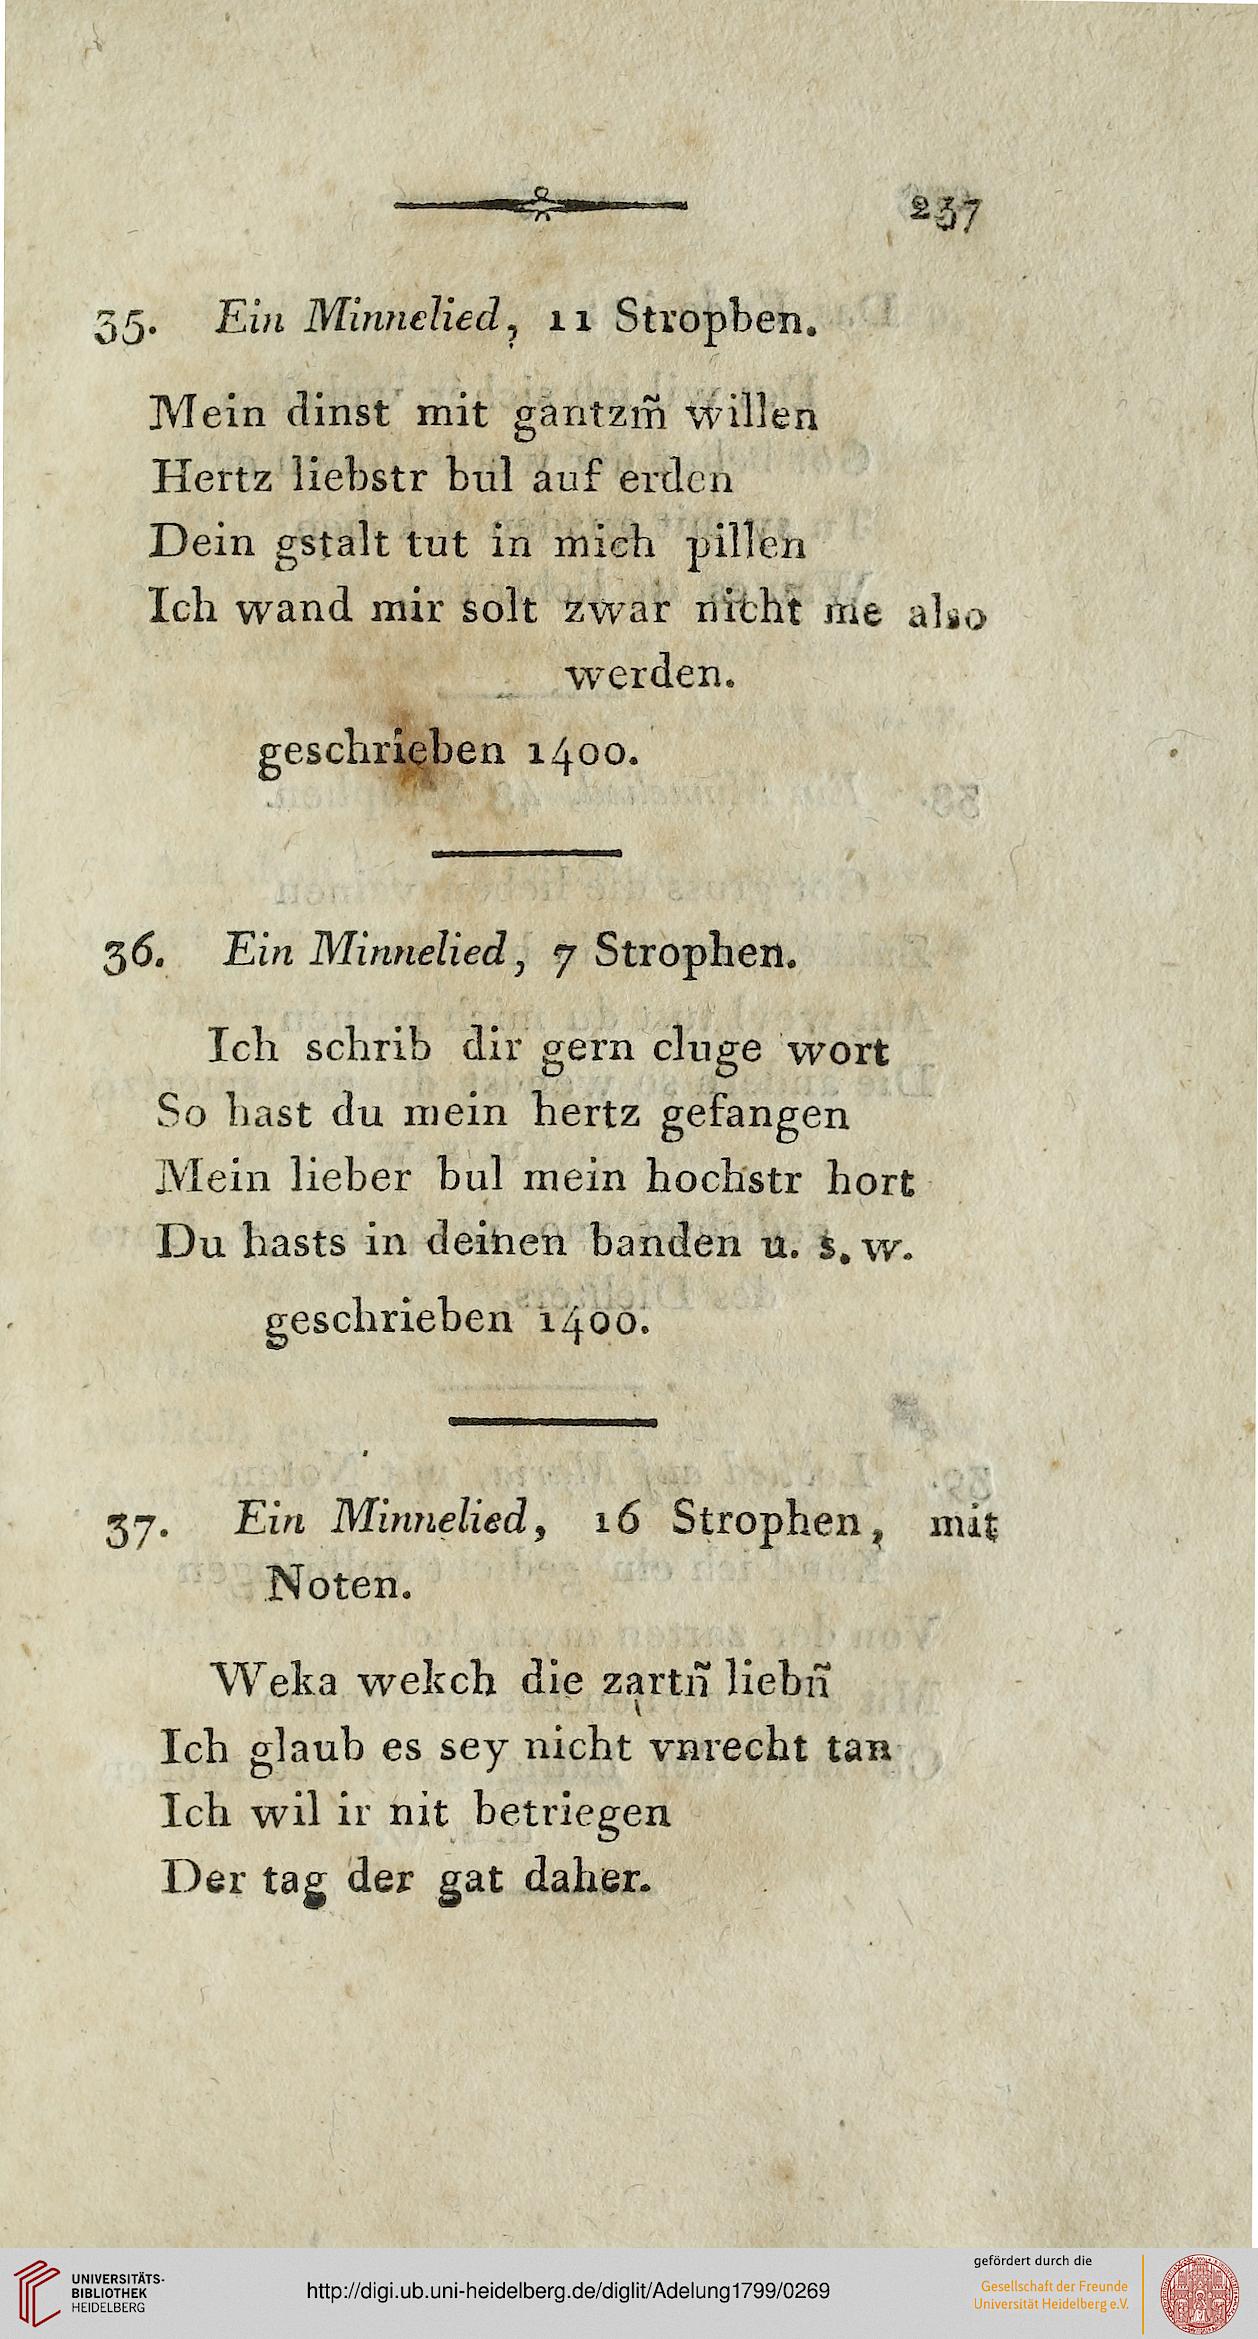 237
35. Ein Minnelied, 11 Strophen.
Mein dinst mit gantzm̃ willen
Hertz liebstr bul auf erden
Dein gstalt tut in mich pillen
Ich wand mir solt zwar nicht me also
werden.
geschrieben 1400.
36. Ein Minnelied, 7 Strophen.
Ich schrib dir gern cluge wort
So hast du mein hertz gefangen
Mein lieber bul mein hochstr hort
Du hasts in deinen banden u. s. w.
geschrieben 1400.
37. Ein Minnelied, 16 Strophen, mit
Noten.
Weka wekch die zartñ liebñ
Ich glaub es sey nicht vnrecht tan
Ich wil ir nit betriegen
Der tag der gat daher.
UNIVERSITÄTS-
BIBLIOTHEK
HEIDELBERG
http://digi.ub.uni-heidelberg.de/diglit/Adelung1799/0269
gefördert durch die
Gesellschaft der Freunde
Universität Heidelberg e.V.